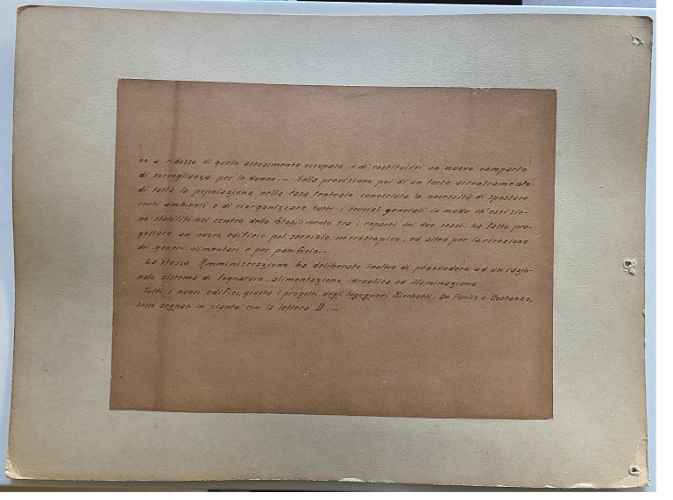 ne a ridosso di quelle attualmente occupate, e di costituirvi un nuovo comparto
di sorveglianza per le donne. — Nella previsione poi di un forte accentramento
di tutta la popolazione nella casa centrale constatata la necessità di spostare
certi ambienti e di riorganizzare tutti i servizi generali in modo ch'essi sie-
no stabiliti nel centro dello Stabilimento tra i reparti dei due sessi, ha fatto pro-
gettare un nuovo edificio pel servizio idroterapico, ed altro per la
dei generi alimentari e per panificio. —
La stessa Amministrazione ha deliberato inoltre di provvedere ad un
sistema di fognatura, alimentazione idraulica ed illuminazione.
Tutti i nuovi edifici, giusta i progetti degli Ingegneri De Paolis e Costanzo,
sono segnati in pianta con la lettera B. —